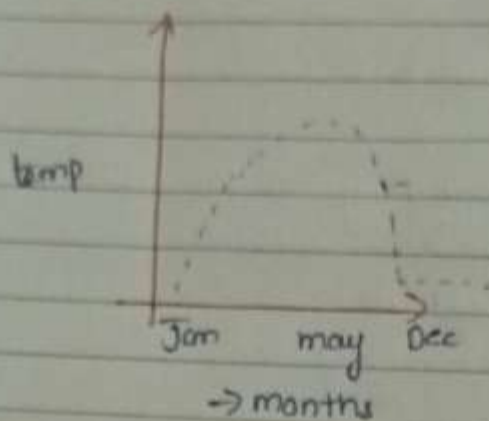 temp
Jan may Dec
-> months